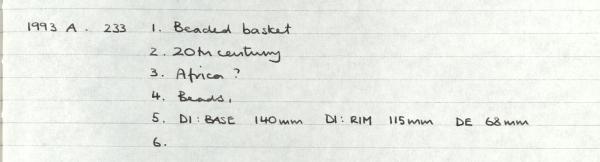 1993 A. 233 1. Beaded basket
2. 20th century
3. Africa?
4. Beads,
5. DI: BASE 140mm DI: RIM 115mm DE 68mm
6.